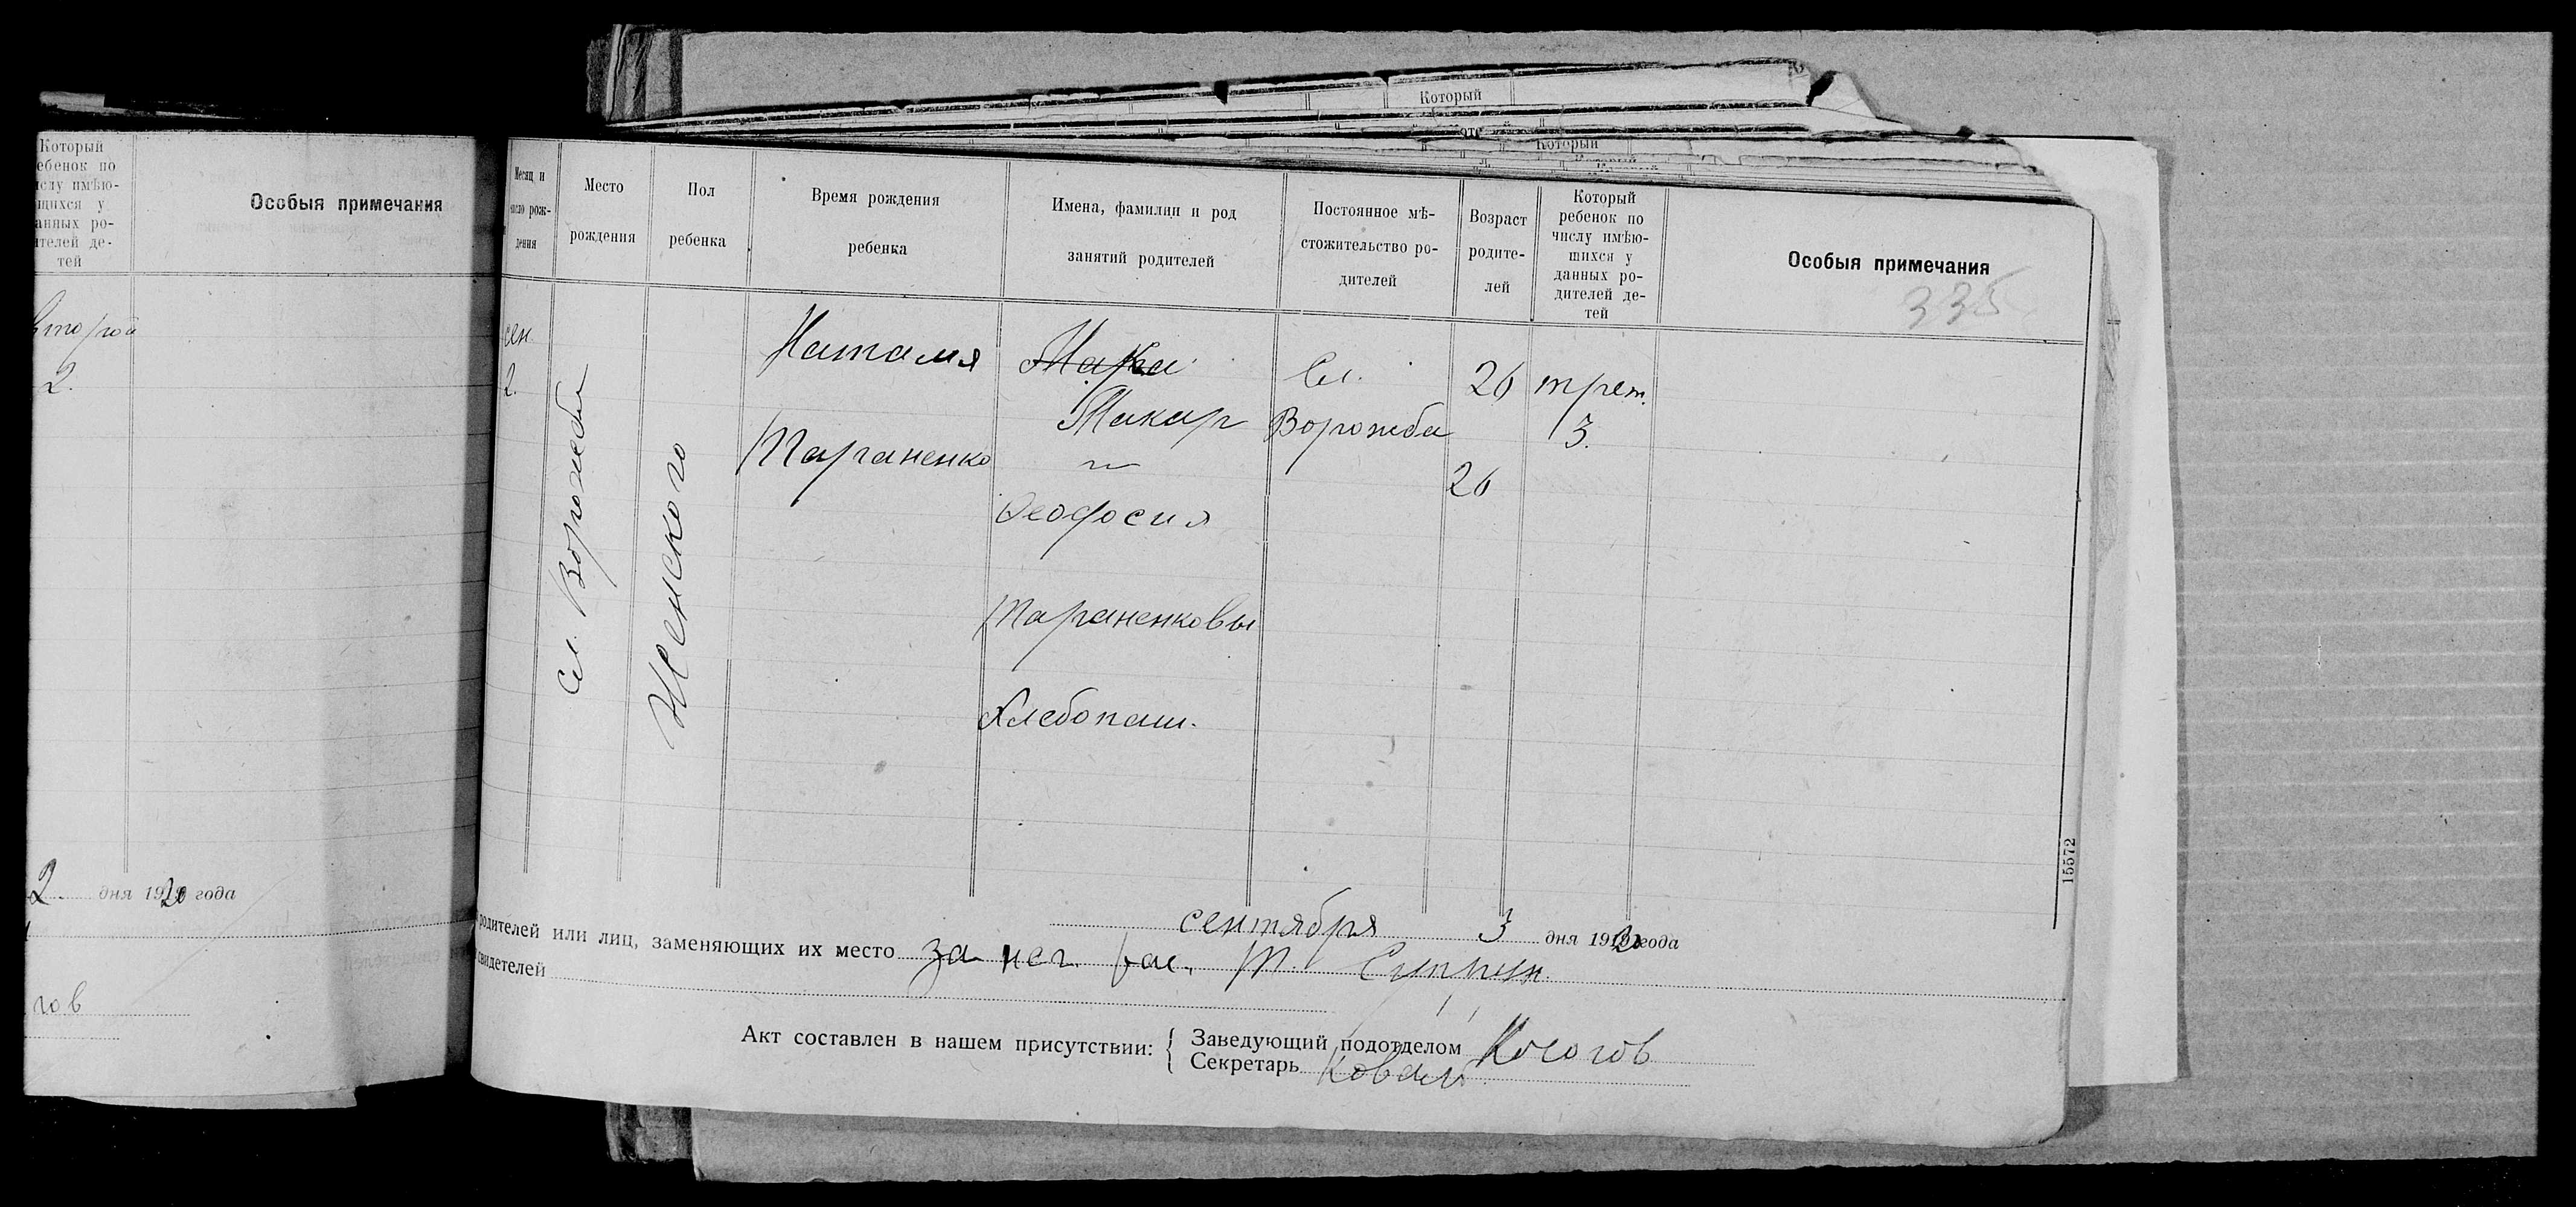 Который
Который
Который
ебенок по
числу имѣю-
щихся у
анных ро-
ителей де-
тей
Особыя примечания
второй
2.
2 дня 1920 года
гов
Месяц и
число рож-
дения
Место
рождения
Пол
ребенка
Время рождения
ребенка
Имена, фамилии и род
занятий родителей
Постоянное мѣ-
стожительство ро-
дителей
Возраст
родите-
лей
Который
ребенок по
числу имѣю-
шихся у
данных ро-
дителей де-
тей
Особыя примечания
335
сен.
2.
Сл. Ворожба
Женского
Наталия
Тараненко
Макар
и
Феодосия
Тараненковы
Хлебопаш.
Сл.
Ворожба
26
26
трет.
3.
15572
сентября 3 дня 1920 года
родителей или лиц, заменяющих их место за нег. рас. Т. Супрун
свидетелей
Акт составлен в нашем присутствии:
Заведующий подотделом Косогов
Секретарь Коваль